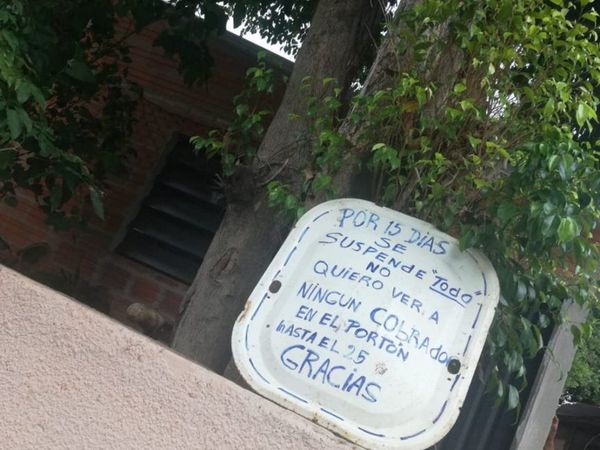 POR 15 DIAS
SE
SUSPENDE "TODO"
NO
QUIERO VER A
NINGUN COBRADOR
EN EL PORTÓN
hASTA EL 25
GRACIAS